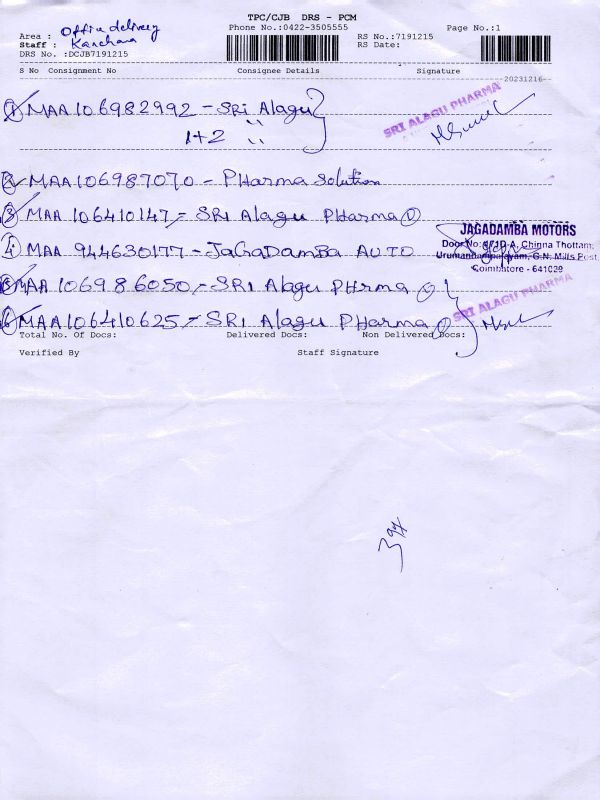 TPC/CJB DRS - PCM
Phone No.:0422-3505555
Page No.:1
Area : Office delivery
Staff : Kanchana
RS No.:7191215
RS Date:
DRS No. :DCJB7191215
S No Consignment No Consignee Details Signature
20231216
1 MAA106982992 - SRi Alagu
1+2
SRI ALAGU PHARMA
2 MAA106987070 - PHarma Solution
3 MAA 106410147 - SRi Alagu PHarma
4 MAA 944630177 - JaGaDamBa AUTO
JAGADAMBA MOTORS
Door No: 471D-A, Chinna Thottam,
Urumandampalayam, G.N. Mills Post
Coimbatore - 641029
5 MAA 106986050 - SRI Alagu PHrma
SRI ALAGU PHARMA
6 MAA106410625 - SRi Alagu PHarma
Total No. Of Docs: Delivered Docs: Non Delivered Docs:
Verified By Staff Signature